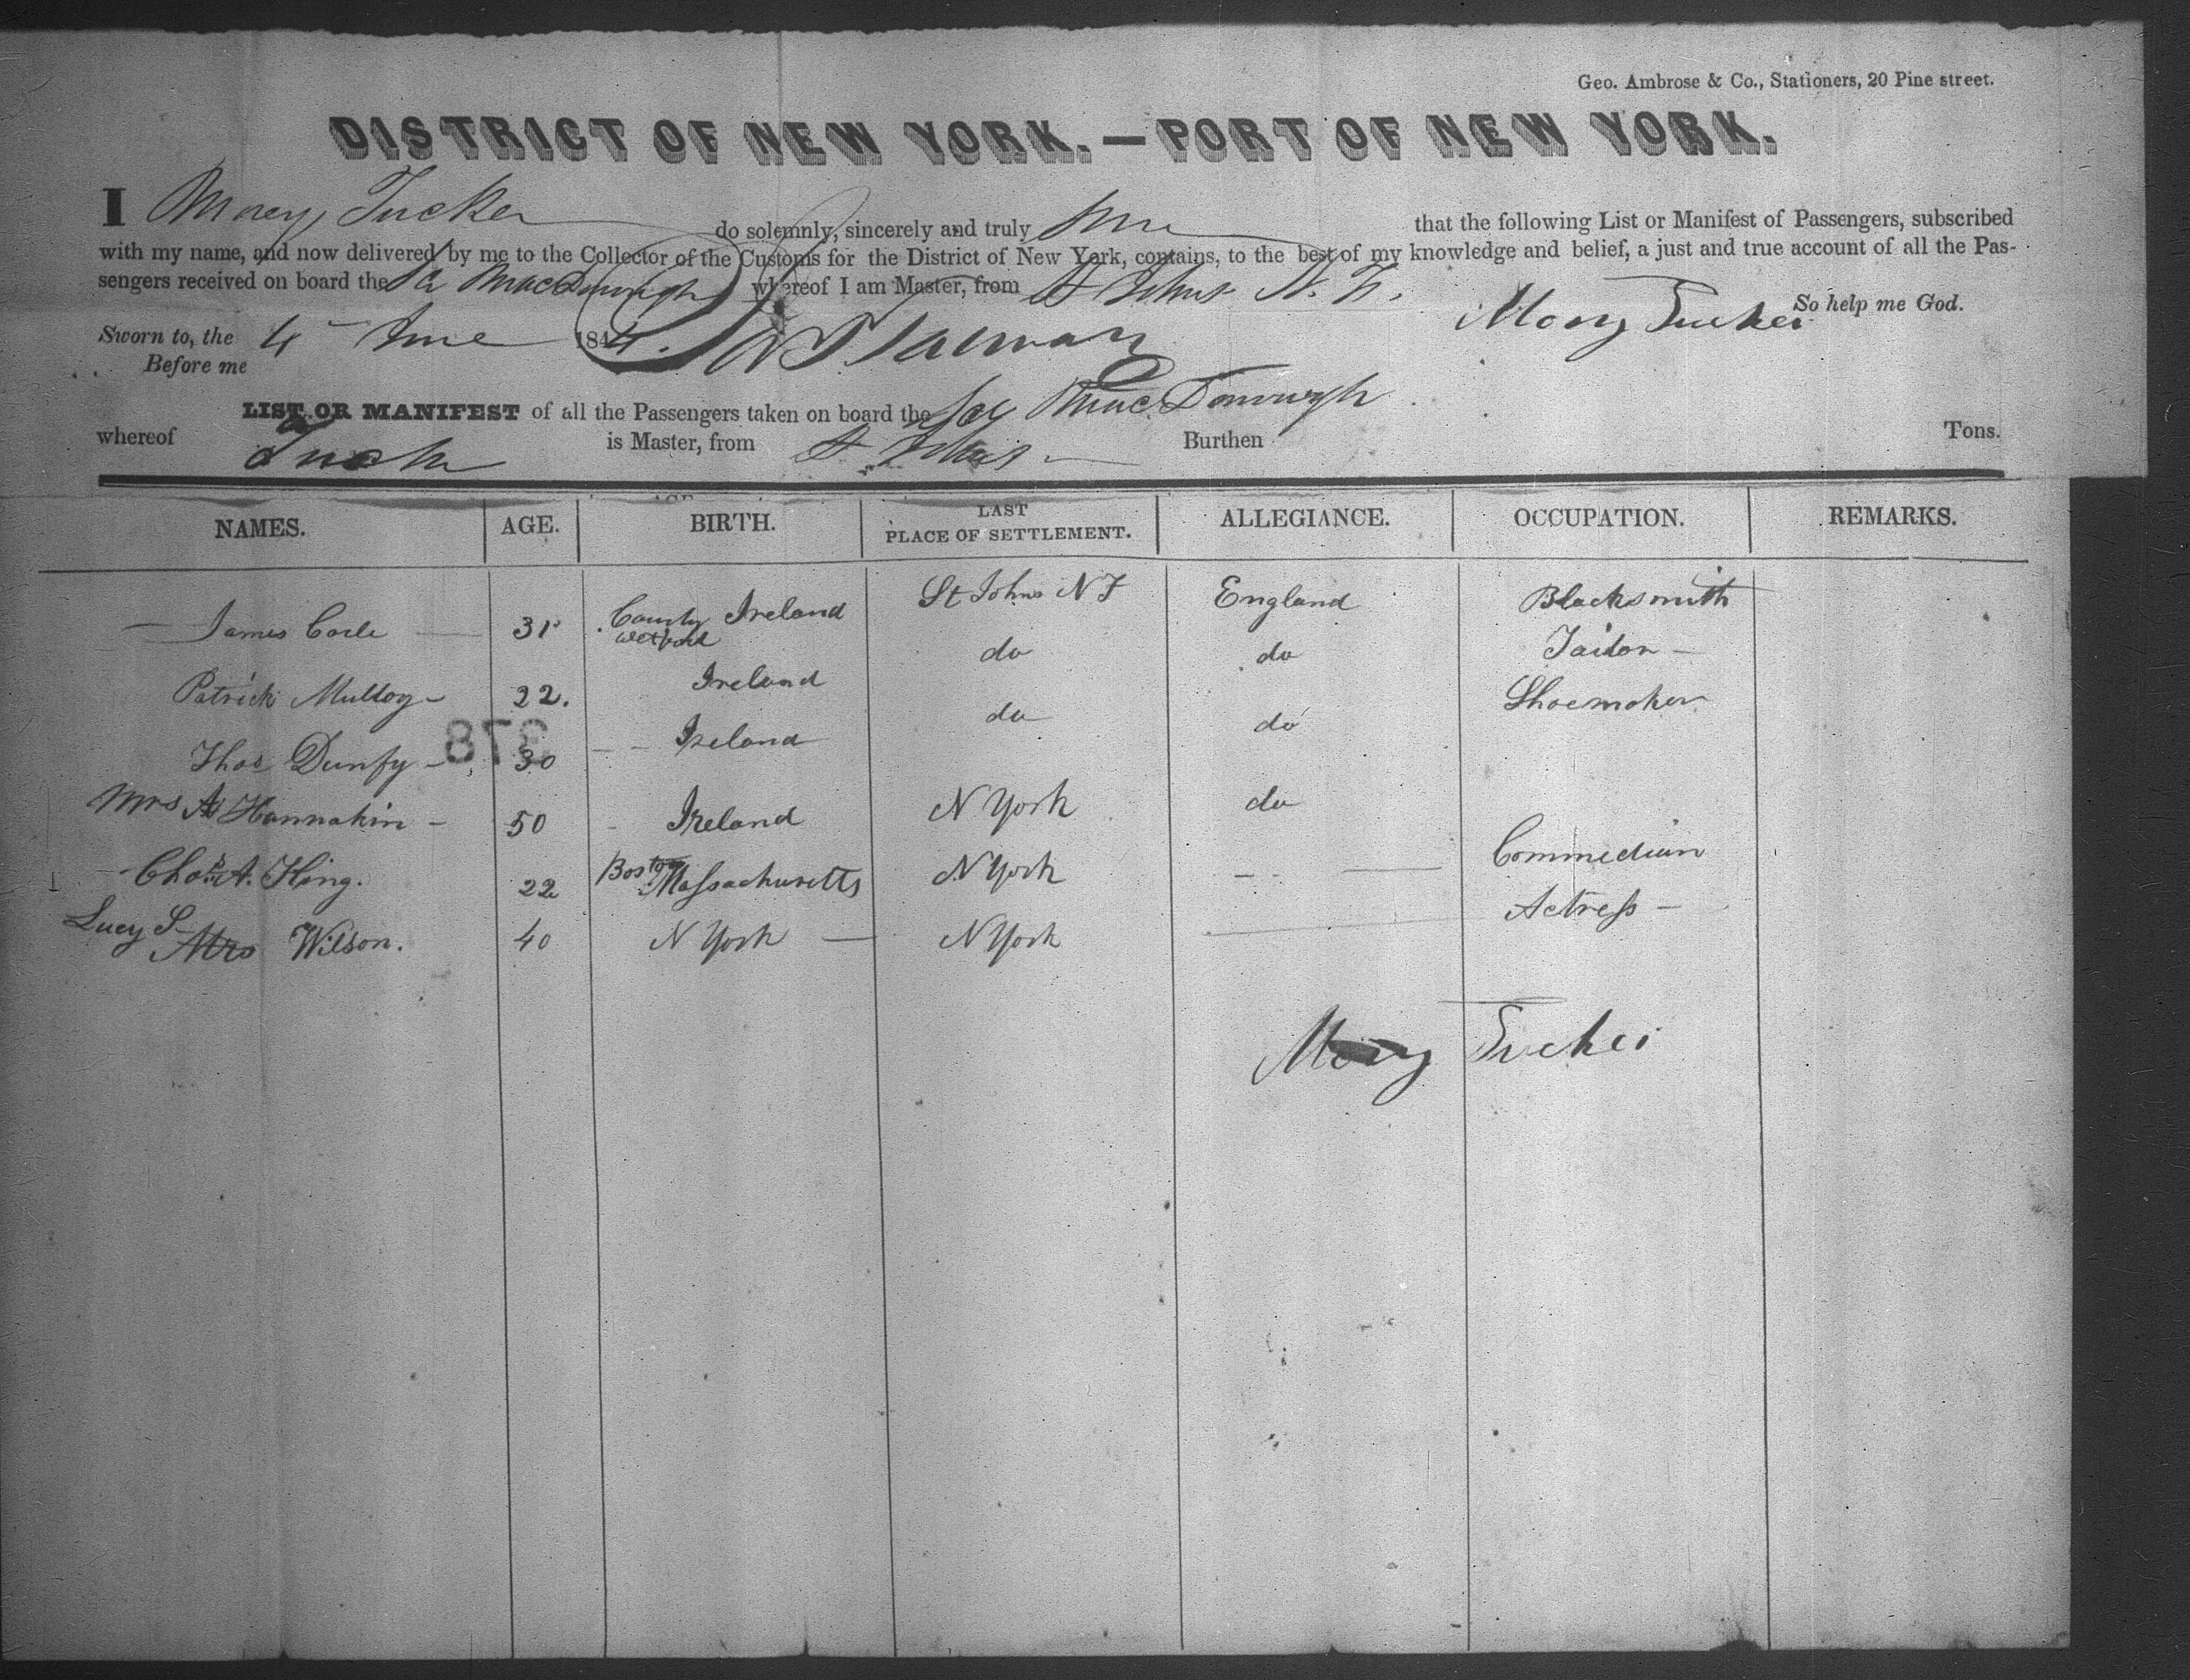 Geo. Ambrose & Co., Stationers, 20 Pine street.
DISTRICT OF NEW YORK.—PORT OF NEW YORK.
I Morey Tucker do solemnly, sincerely and truly that the following List or Manifest of Passengers, subscribed
with my name, and now delivered by me to the Collector of the Customs for the District of New York, contains, to the best of my knowledge and belief, a just and true account of all the Pas-
sengers received on board the MacDonough whereof I am Master, from St Johns N. F.
So help me God.
Morey Tucker
Sworn to, the 4 June 1844.
Before me
LIST OR MANIFEST of all the Passengers taken on board the MacDonough
whereof Tucker is Master, from St Johns Burthen Tons.
NAMES. AGE. BIRTH. LAST PLACE OF SETTLEMENT. ALLEGIANCE. OCCUPATION. REMARKS.
James 31 County Wexford Ireland St Johns NF England Blacksmith
Patrick Mulloy 22. Ireland do do Tailor
Thos Dunfy 30 Ireland do do Shoemaker
Mrs A Hannakin 50 Ireland N York do
Chas A. King. 22 Boston Massachusetts N York Commedian
Lucy S Mrs Wilson. 40 N York N York Actress
378
Morey Tucker